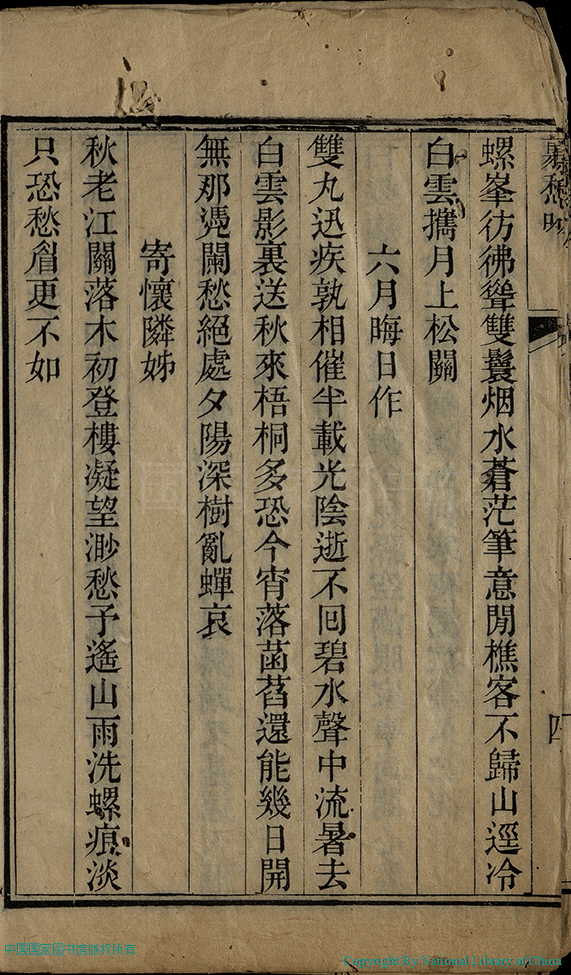 螺峯彷彿聳雙鬟烟水蒼茫筆意閒樵客不歸山逕冷
白雲擕月上松關
六月晦日作
雙丸迅疾孰相催半載光陰逝不囘碧水聲中流暑去
白雲影裏送秋來梧桐多恐今宵落菡萏還能幾日開
無那凭闌愁絕處夕陽深樹亂蟬哀
寄懷隣姊
秋老江關落木初登樓凝望渺愁予遙山雨洗螺痕淡
只恐愁眉更不如
四
中国国家图书馆版权所有
Copyright By National Library of China